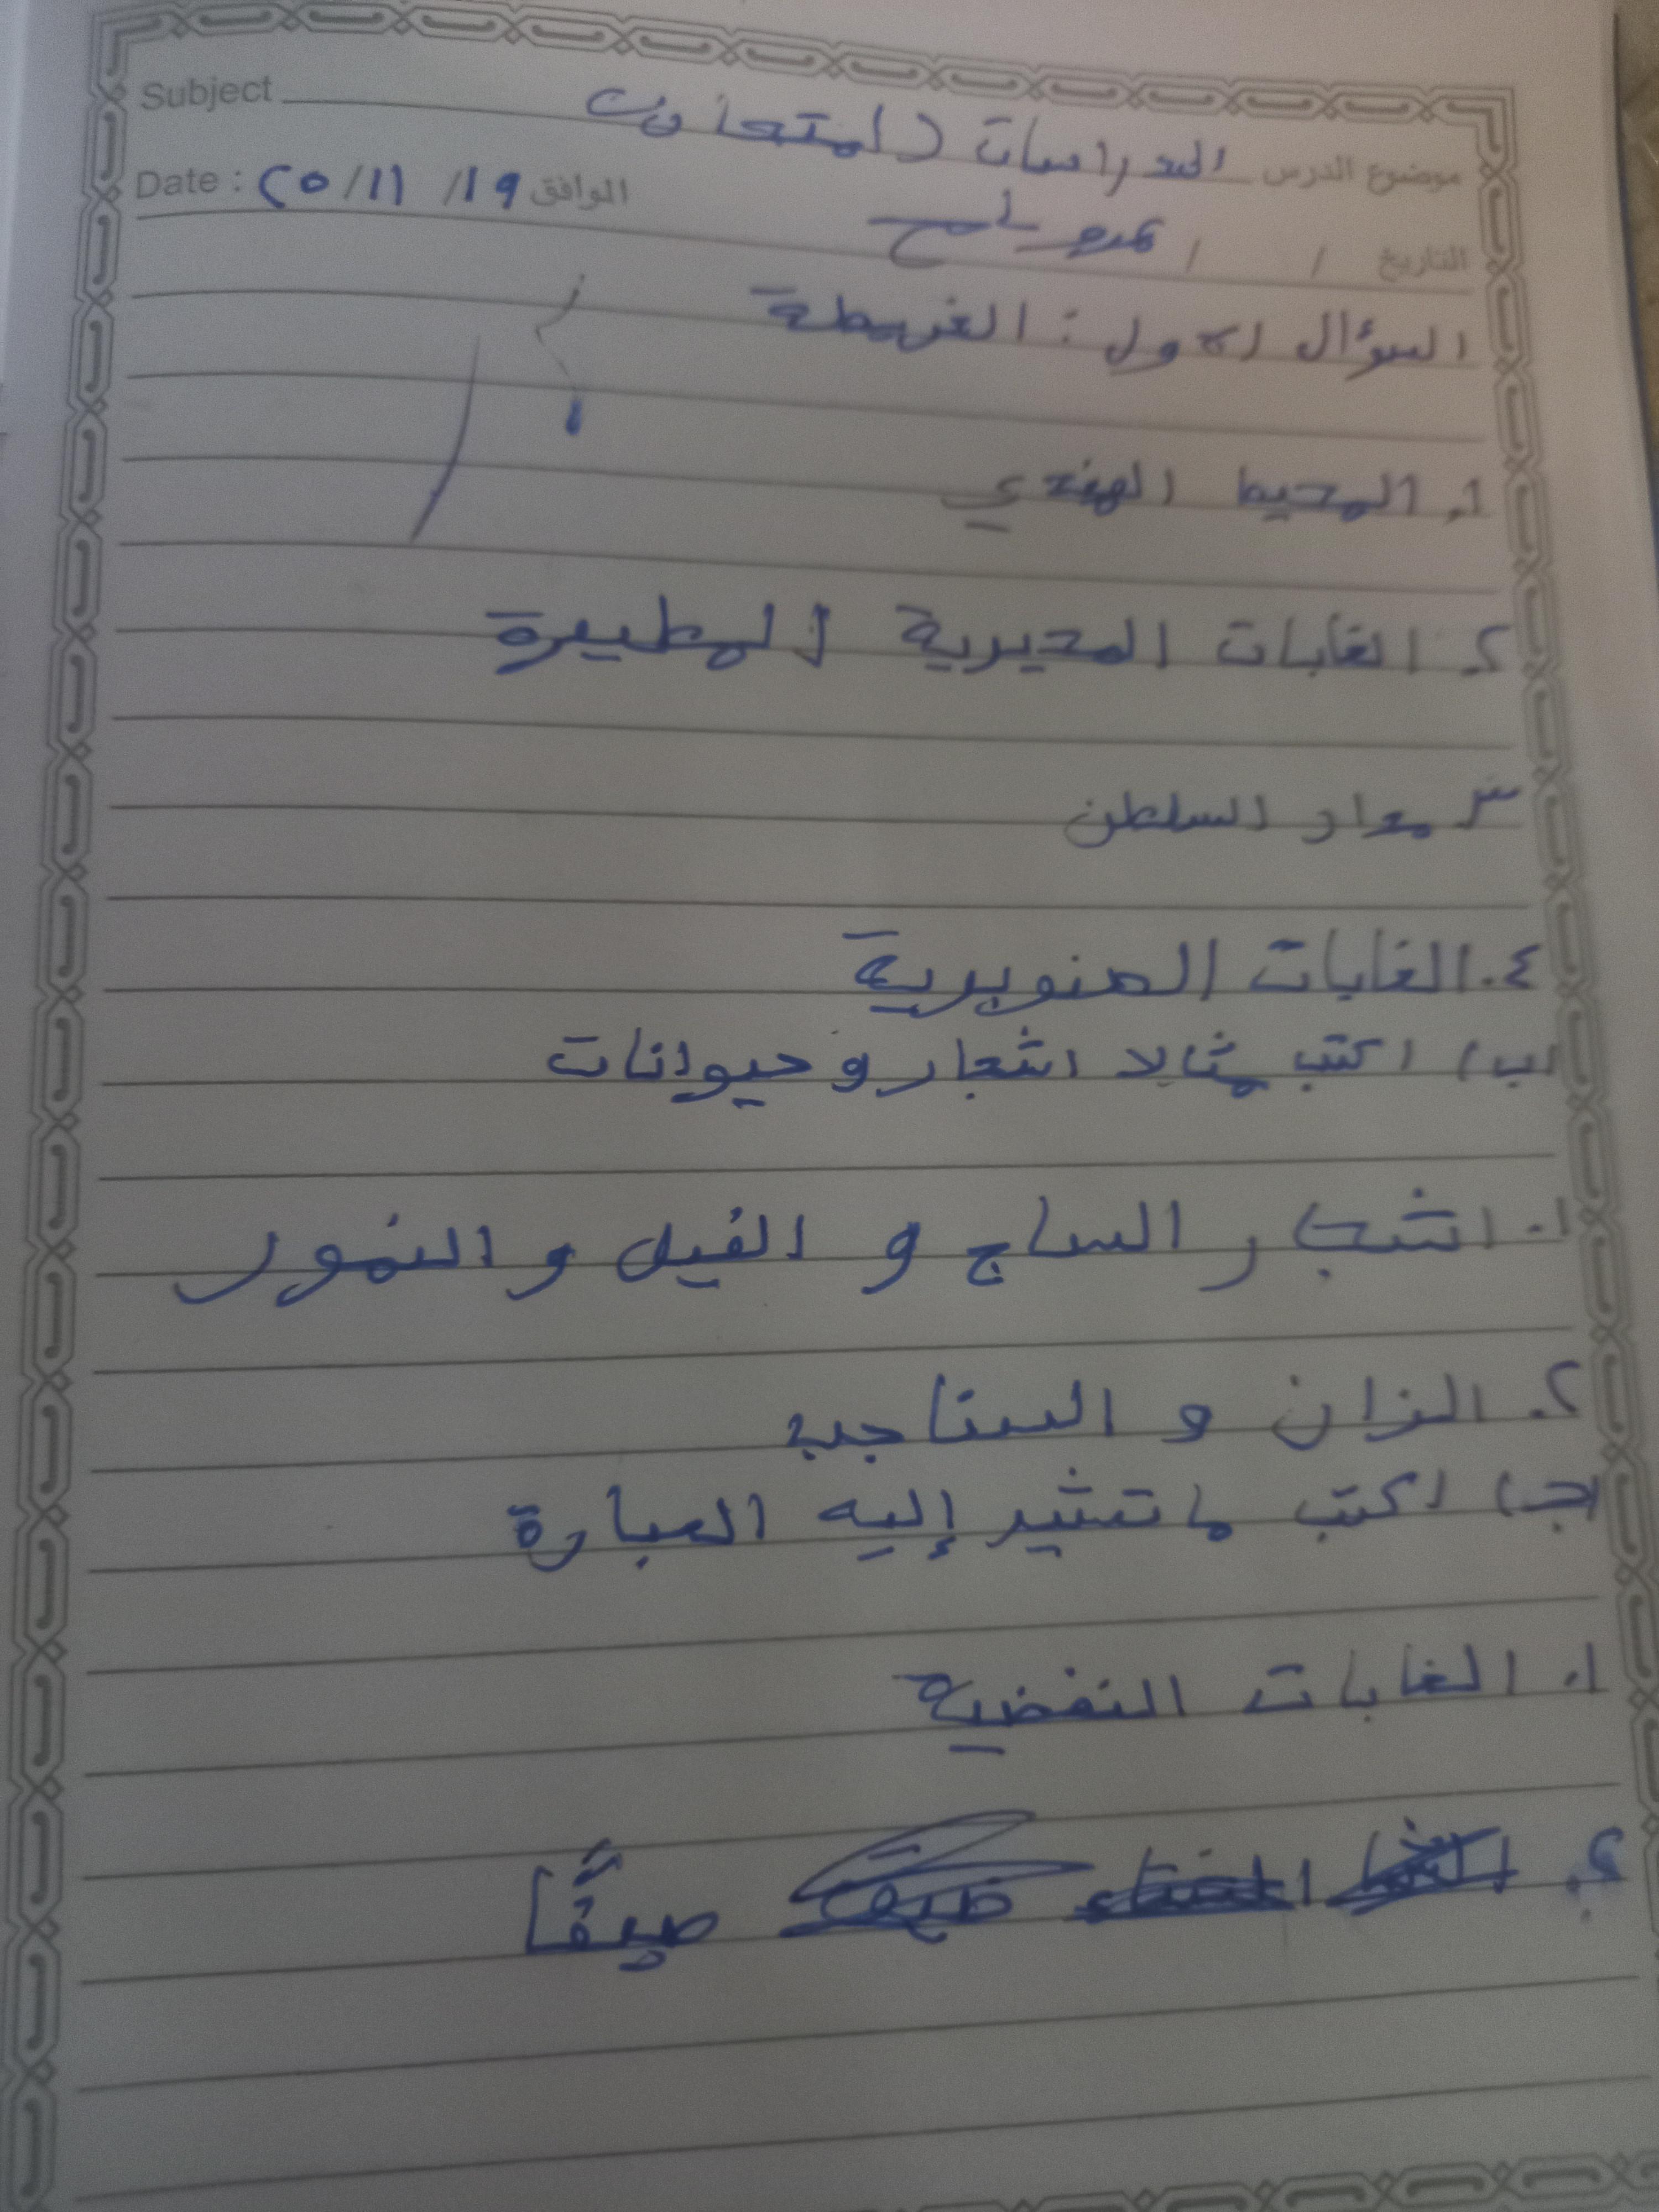 Subject
موضوع الدرس الدراسات (امتحان
Date : ٢٥/١١/١٩ الموافق
التاريخ / /
السؤال الاول : الخريطة
١. المحيط الهندي
٢. الغابات المديرية المطيرة
٣ مدار السلطن
٤. الغابات الصنوبرية
(ب) اكتب مثالا اشجار و حيوانات
١- اشجار الساج و الفيل و النمور
٢. الزان و السناجب
(جـ) اكتب ما تشير إليه العبارة
١. الغابات النفضية
٢. صيفًا